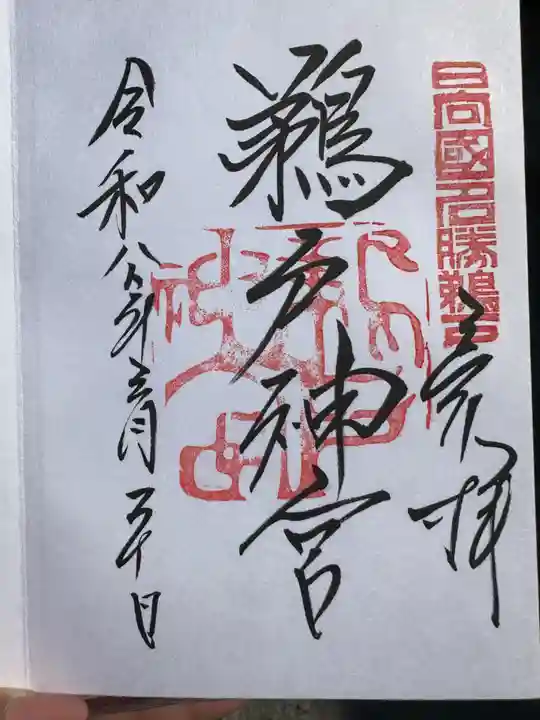 日向國名勝鵜戸
奉拝
鵜戸神宮
令和八年三月二十日